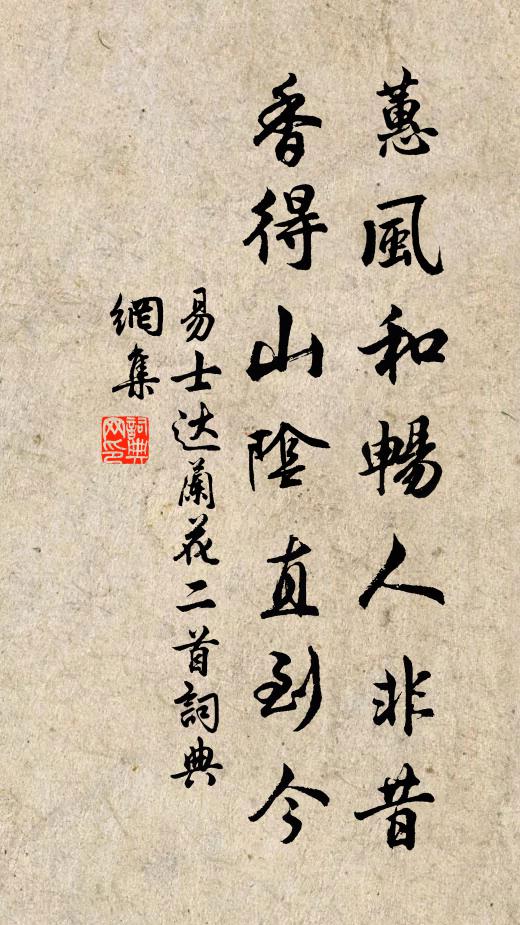 蕙風和暢人非昔
香得山陰直到今
易士达蘭花二首詞典
網集
詞典
网印